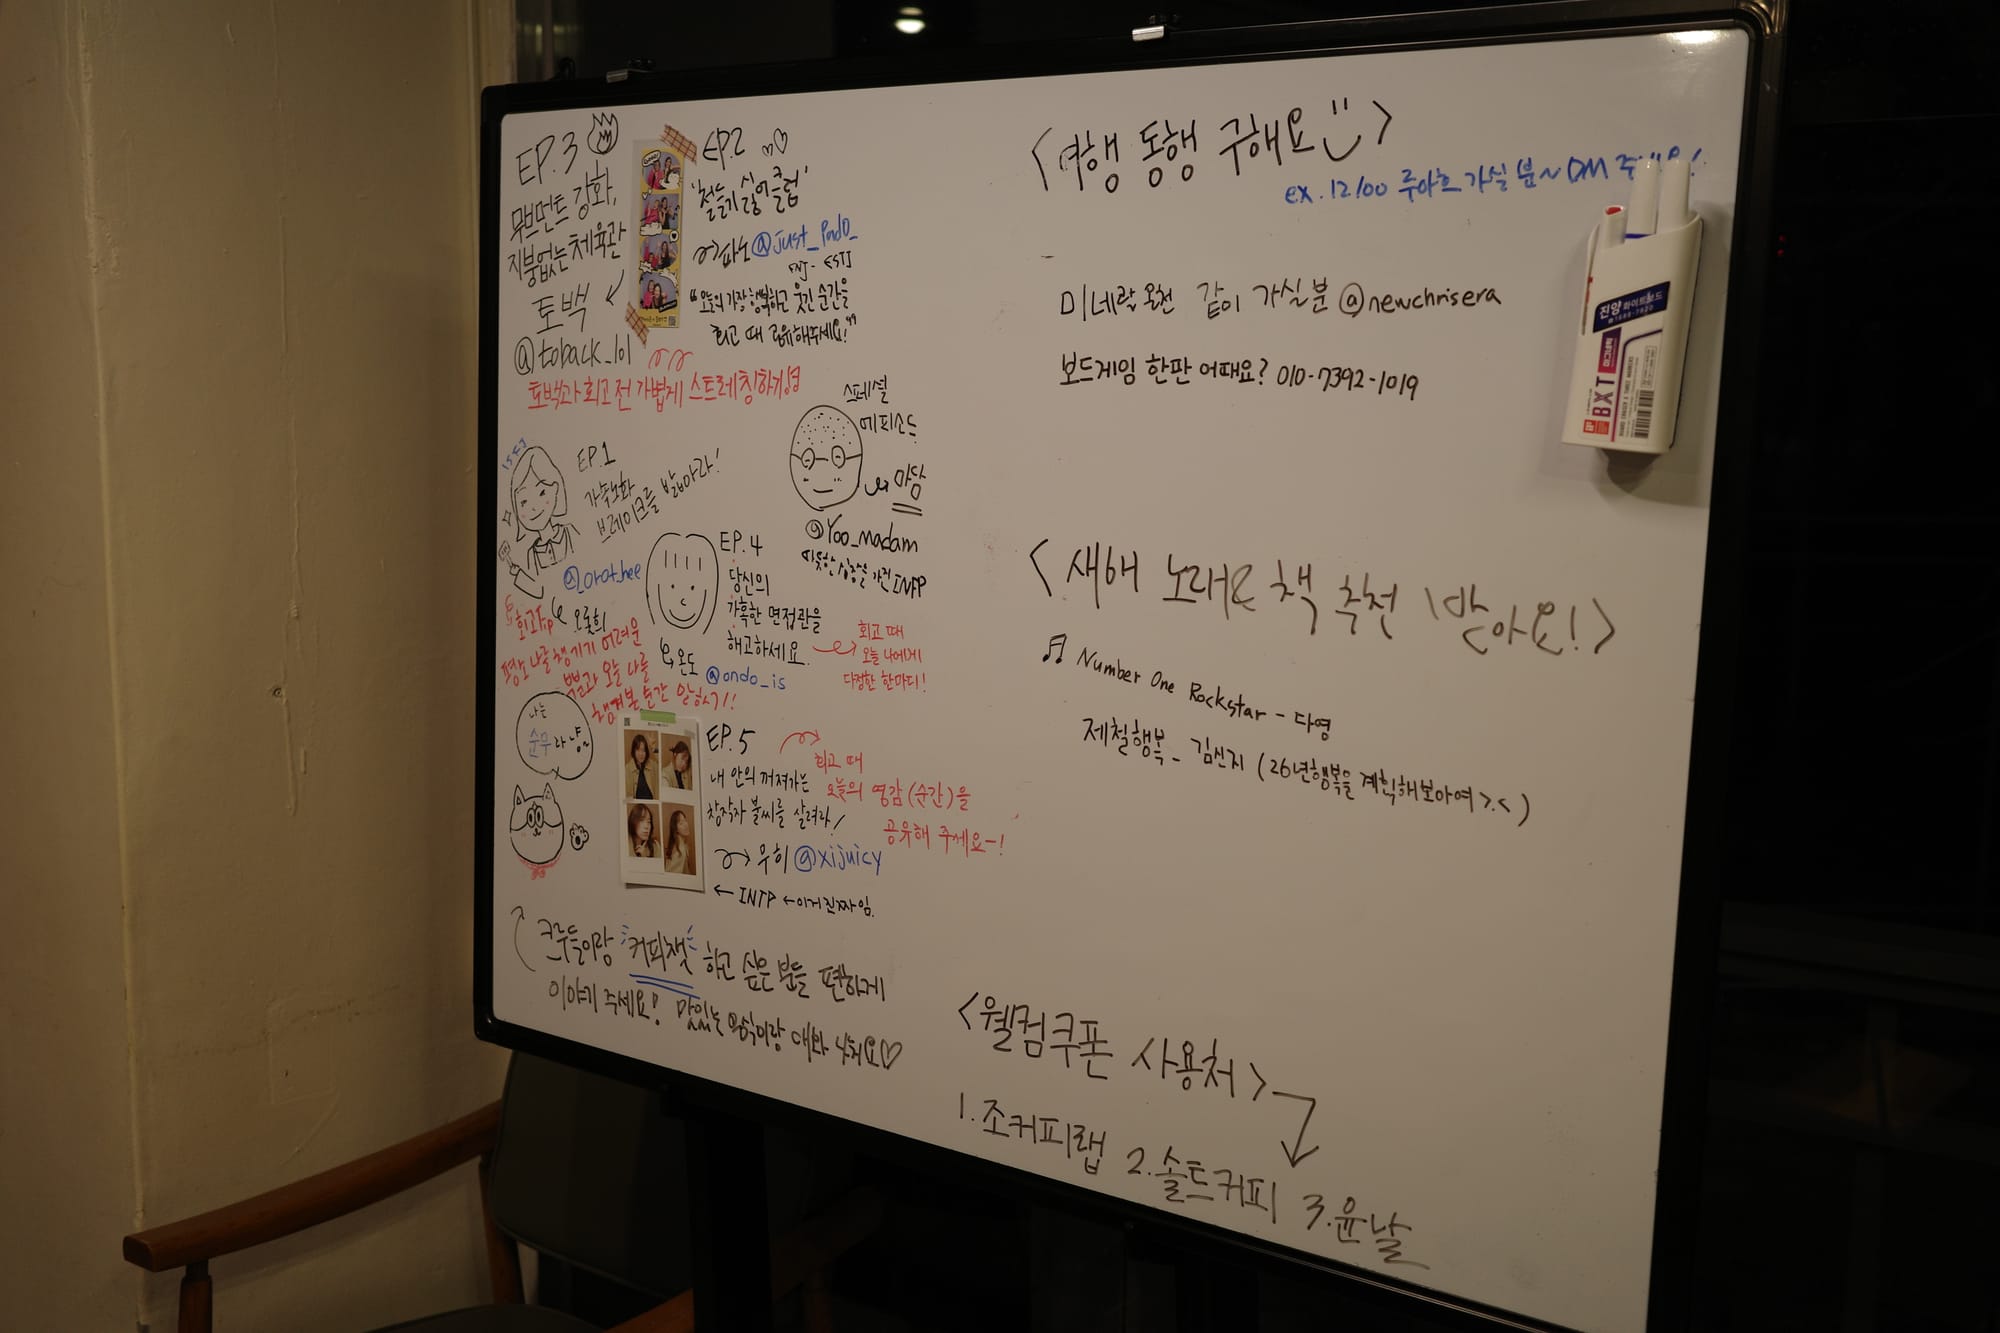 EP.3
무브먼트 강화,
지붕없는 체육관
토백
@toback_lol
토백과 회고 전 가볍게 스트레칭하기!
EP.2
'철들기 싫어 클럽'
@just_pado_
ESTJ
"오늘의 가장 행복하고 웃긴 순간을
회고 때 공유해주세요!"
스페셜
에피소드
마담
@Yoo_madam
따뜻한 심장을 가진 INFP
EP.1
가속노화
브레이크를 밟아라!
@orot_hee
오롯희
회고tip
평소 나를 챙기기 어려운
오늘 나를
챙겨본 순간 말하기!!
EP.4
당신의
가혹한 면접관을
해고하세요.
온도
@ondo_is
회고 때
오늘 나에게
다정한 한마디!
나는
순무라냥~
EP.5
내 안의 꺼져가는
창작자 불씨를 살려라!
우히 @xijuicy
INTP ← 이게 진짜임.
회고 때
오늘의 영감(순간)을
공유해 주세요-!
크루들이랑 "커피챗" 하고 싶은 분들 편하게
이야기 주세요! 맛있는 음식이랑
<여행 동행 구해요>
ex. 12/00 루아흐 가실 분~ DM
미네랄 온천 같이 가실 분 @newchrisera
보드게임 한판 어때요? 010-7392-1019
진양 화이트보드
BXT
<새해 노래 & 책 추천 받아요!>
♬ Number One Rockstar - 다영
제철행복 - 김신지 (26년 행복을 계획해보아여 >.<)
<웰컴쿠폰 사용처>
1. 조커피랩 2. 솔트커피 3. 윤날